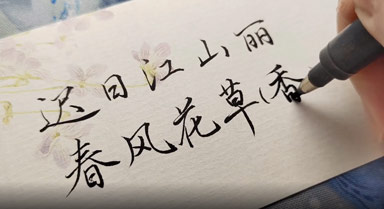 迟日江山丽
春风花草香